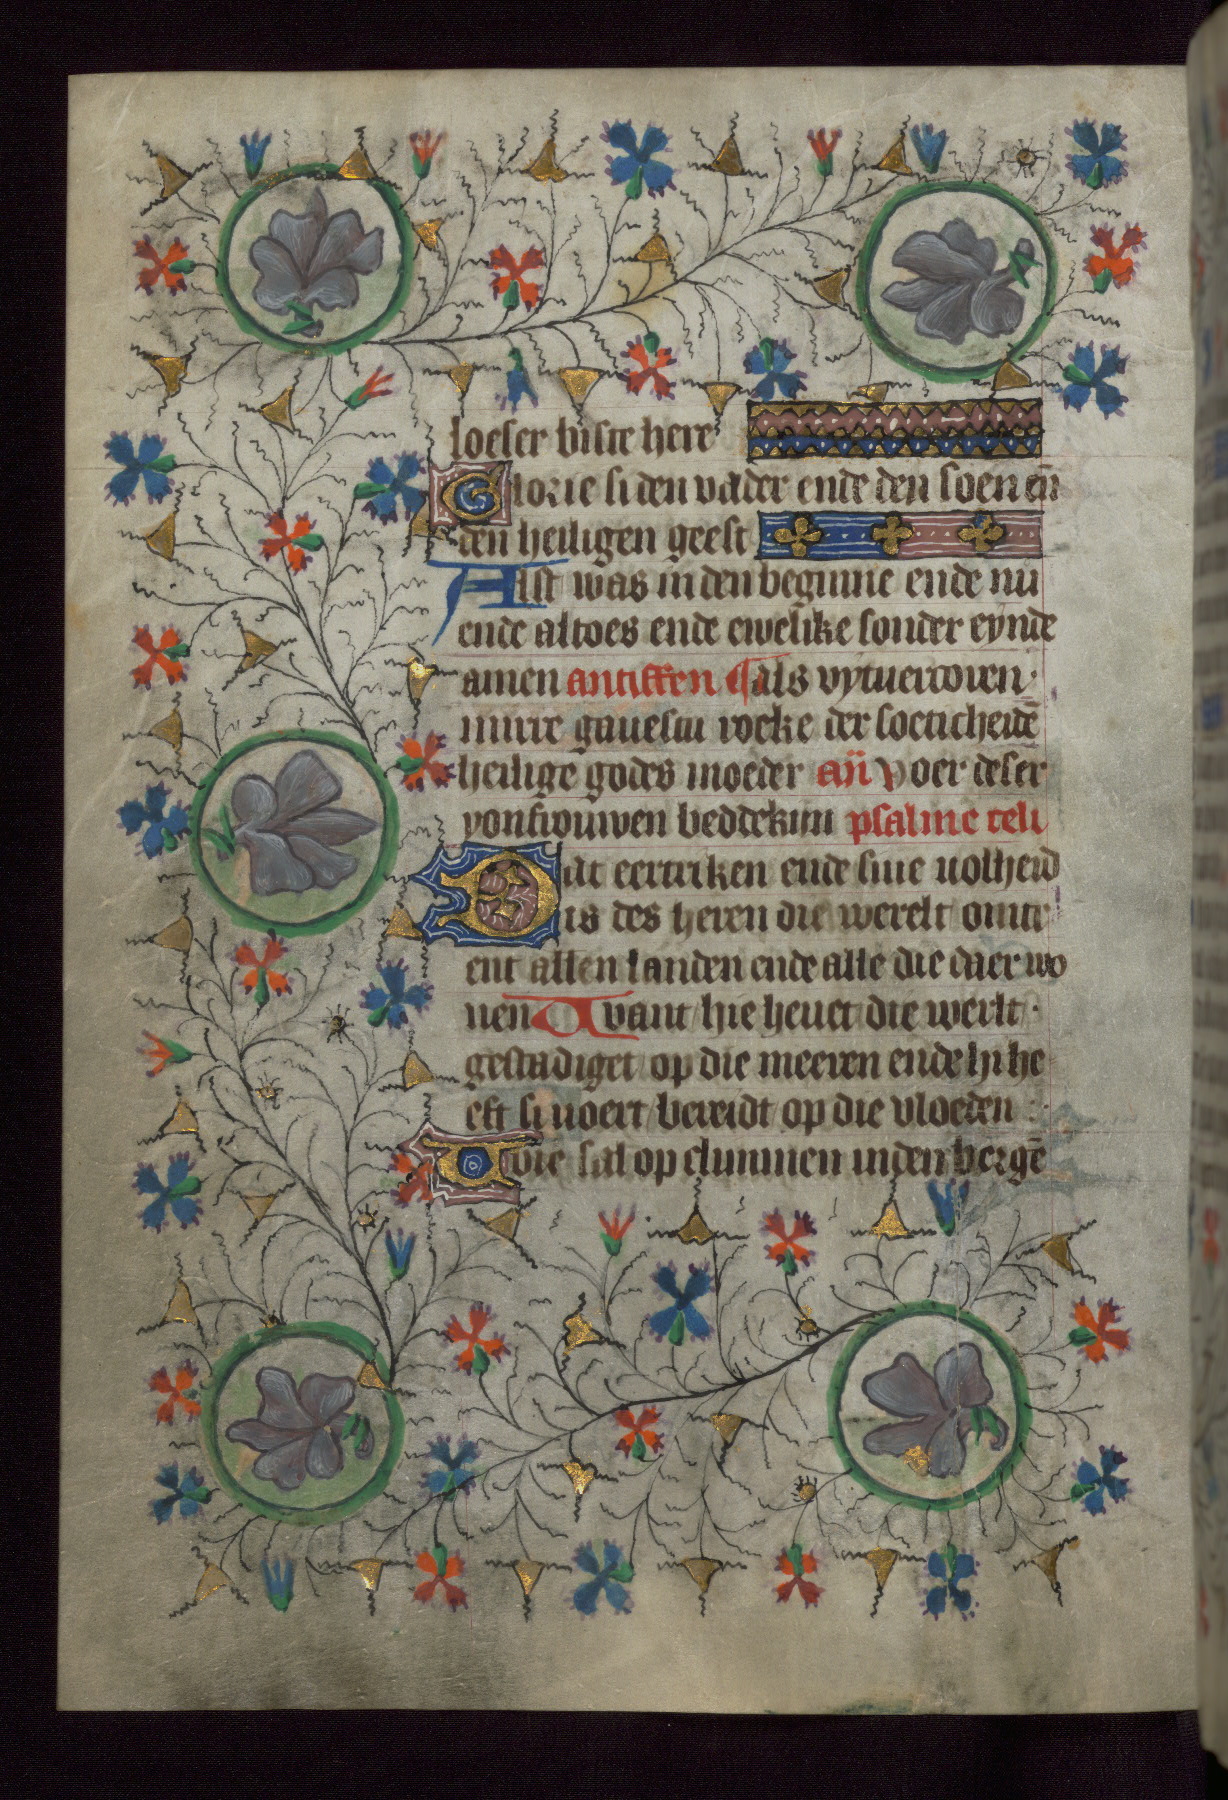 loeser biste here
Glorie si den vader ende den soen en̄
den heiligen geest
Alst was in den beginne ende nu
ende altoes ende ewelike sonder eynde
amen antiffen ¶ als vytuercoren
mirre gauestu roeke der soeticheidē
heilige godes moeder an̄ voer deser
yonfrouwen beddekijn psalme celi
Dat eertriken ende sine uolheid
is des heren die werelt omtr
ent allen landen ende alle die daer wo
nen Want hie heuet die werlt
gestadiget op die meeren ende hi he
eft si uoert bereidt op die vloeden
Wie sal op clummen in den bergē